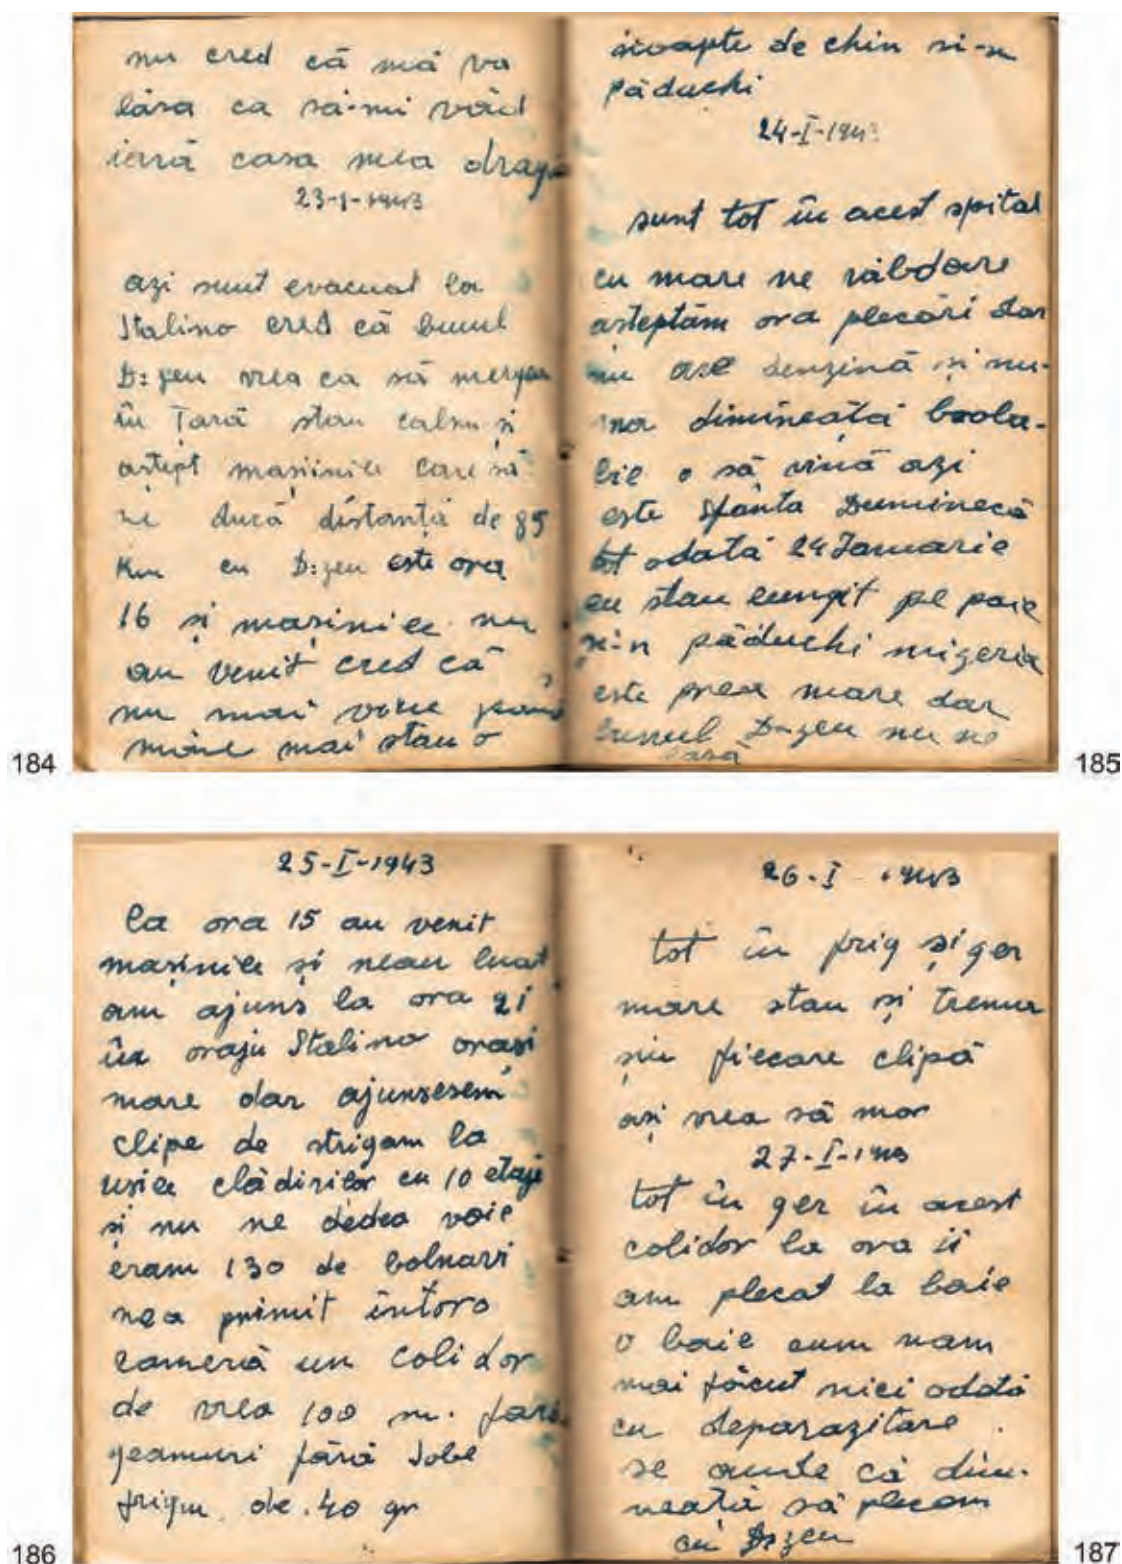 nu cred că mă va
lăsa ca să-mi văd
iară casa mea dragă
23-I-1943
azi sunt evacuat la
Stalino cred că bunul
D:zeu vrea ca să mergem
în Țară stau calm și
aștept mașinile care să
ne ducă distanță de 85
Km cu D:zeu este ora
16 și mașinile nu
au venit cred că
nu mai vine pană
mâne mai stau o
184
noapte de chin si-n
păduchi
24-I-1943
sunt tot în acest spital
cu mare ne răbdare
așteptăm ora plecări dar
nu are benzină și nu-
ma dimineată broba-
bil o să vină azi
este Sfânta Duminecă
tot odată 24 Ianuarie
eu stau lungit pe paie
și-n păduchi mizeria
este prea mare dar
bunul D-zeu nu ne
lasă
185
25-I-1943
la ora 15 au venit
mașinile și neau luat
am ajuns la ora 21
în orașu Stalino orași
mare dar ajunsesem
clipe de strigam la
usile clădirilor cu 10 etaje
și nu ne dedea voie
eram 130 de bolnavi
nea primit întoro
cameră un colidor
de vreo 100 m. fară
geamuri fără sobe
frigu de 40 gr
186
26-I-1943
tot în frig și ger
mare stau și tremur
șin fiecare clipă
ași vrea să mor
27-I-1943
tot în ger în acest
colidor la ora 11
am plecat la baie
o baie cum nam
mai făcut nici odată
cu deparazitare
se aude că dim-
neață să plecam
cu D:zeu
187